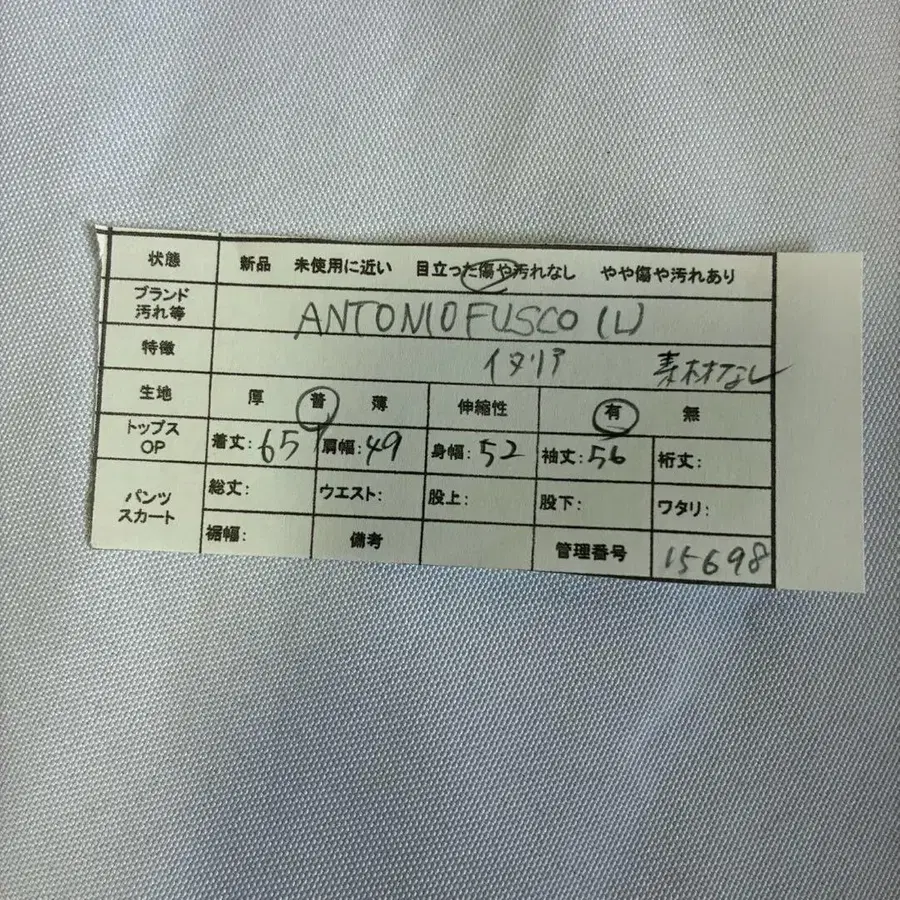 状態 新品 未使用に近い 目立った傷や汚れなし やや傷や汚れあり
ブランド
汚れ等 ANTONIO FUSCO (L)
特徴 イタリア 素材なし
生地 厚 普 薄 伸縮性 有 無
トップス
OP 着丈:65 肩幅:49 身幅:52 袖丈:56 裄丈:
パンツ
スカート 総丈: ウエスト: 股上: 股下: ワタリ:
裾幅: 備考 管理番号 15698